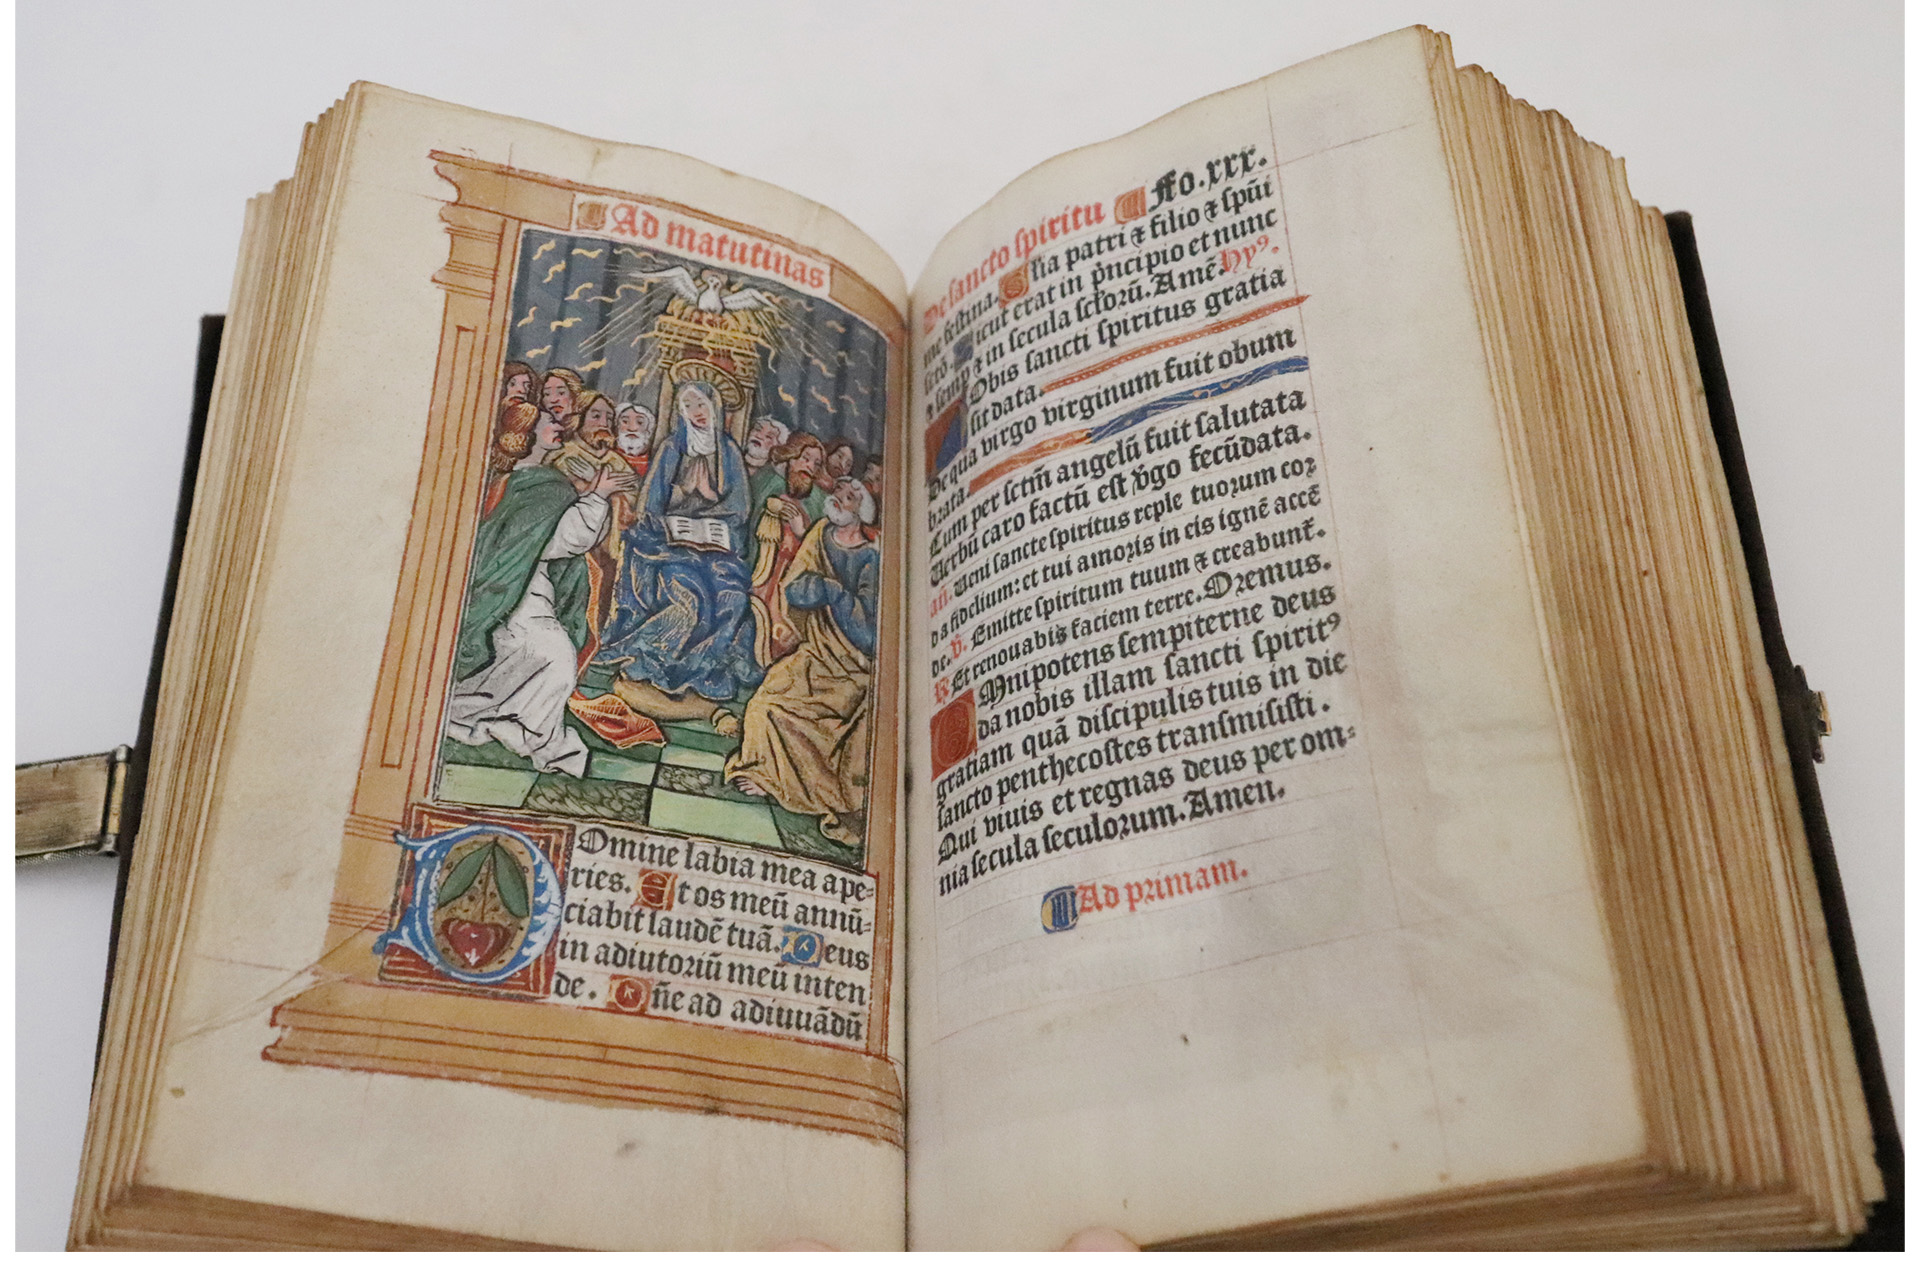 Ad matutinas
Domine labia mea ape-
ries. Et os meū annū-
ciabit laudē tuā. Deus
in adiutoriū meū inten
de. Dñe ad adiuuādū
De sancto spiritu Fo. xxx.
me festina. Gľia patri ⁊ filio ⁊ spūi
sctō. Sicut erat in p̉ncipio et nunc
⁊ semꝑ ⁊ in secula sclōꝛū. Amē. Hyꝰ.
Nobis sancti spiritus gratia
sit data.
De qua virgo virginum fuit obum
brata.
Cum per sctm̄ angelū fuit salutata
Verbū caro factū est v̉go fecūdata.
añ. Veni sancte spiritus reple tuoꝛum coꝛ
da fidelium: et tui amoꝛis in eis ignē accē
de. v̄. Emitte spiritum tuum ⁊ creabunt̄.
℟ Et renouabis faciem terre. Oꝛemus.
Omnipotens sempiterne deus
da nobis illam sancti spiritꝰ
gratiam quā discipulis tuis in die
sancto penthecostes transmisisti.
Qui viuis et regnas deus per om-
nia secula seculoꝛum. Amen.
Ad pꝛimam.